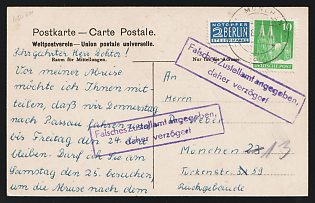 Postkarte – Carte Postale.
Weltpostverein – Union postale universelle.
Raum für Mitteilungen.
Nur für die Adresse.
NOTOPFER
2 BERLIN
STEUERMARKE
10
DEUTSCHE POST
MÜNCH
Falsches Zustellamt angegeben,
daher verzögert
Sehr geehrter Herr Doktor!
Vor meiner Abreise
möchte ich Ihnen mit-
teilen, daß wir Donnerstag
nach Passau fahren
bis Freitag den 24. dort
bleiben. Darf ich Sie am
Samstag den 25. besuchen
um die Abreise nach dem
Herrn
Dr. Weber
München 13
Türkenstr. 59
Rückgebäude
Falsches Zustellamt angegeben,
daher verzögert